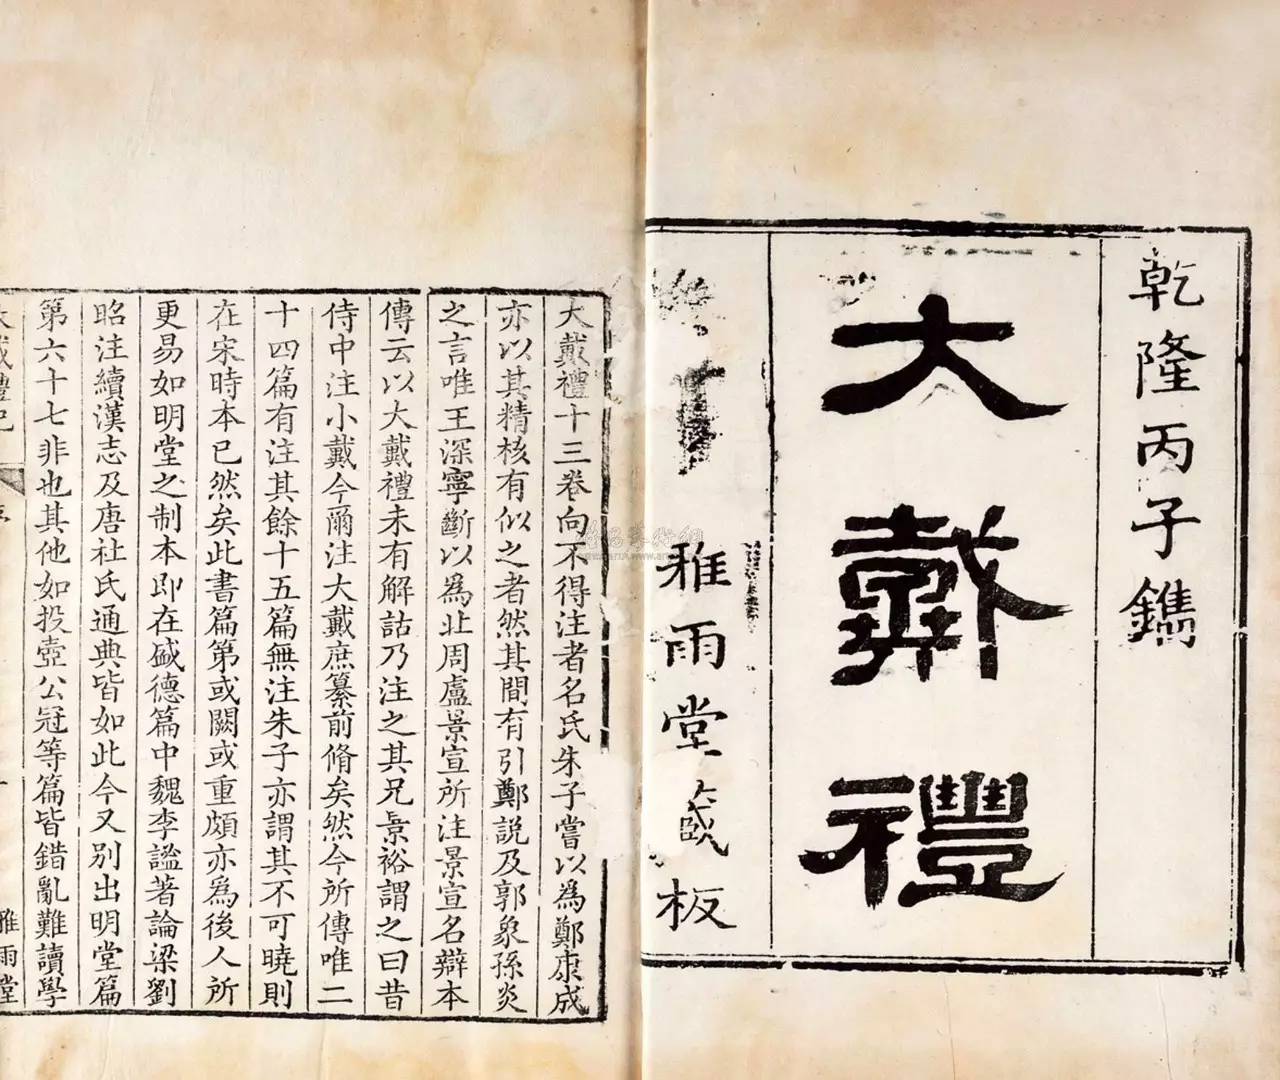 乾隆丙子鐫
大戴禮
雅雨堂藏板
大戴禮十三卷向不得注者名氏朱子嘗以為鄭康成
亦以其精核有似之者然其間有引鄭説及郭象孫炎
之言唯王深寧斷以為北周盧景宣所注景宣名辯本
傳云以大戴禮未有解詁乃注之其兄景裕謂之曰昔
侍中注小戴今爾注大戴庶纂前脩矣然今所傳唯二
十四篇有注其餘十五篇無注朱子亦謂其不可曉則
在宋時本已然矣此書篇第或闕或重頗亦為後人所
更易如明堂之制本即在盛德篇中魏李謐著論梁劉
昭注續漢志及唐杜氏通典皆如此今又別出明堂篇
第六十七非也其他如投壺公冠等篇皆錯亂難讀學
大戴禮記
雅雨堂